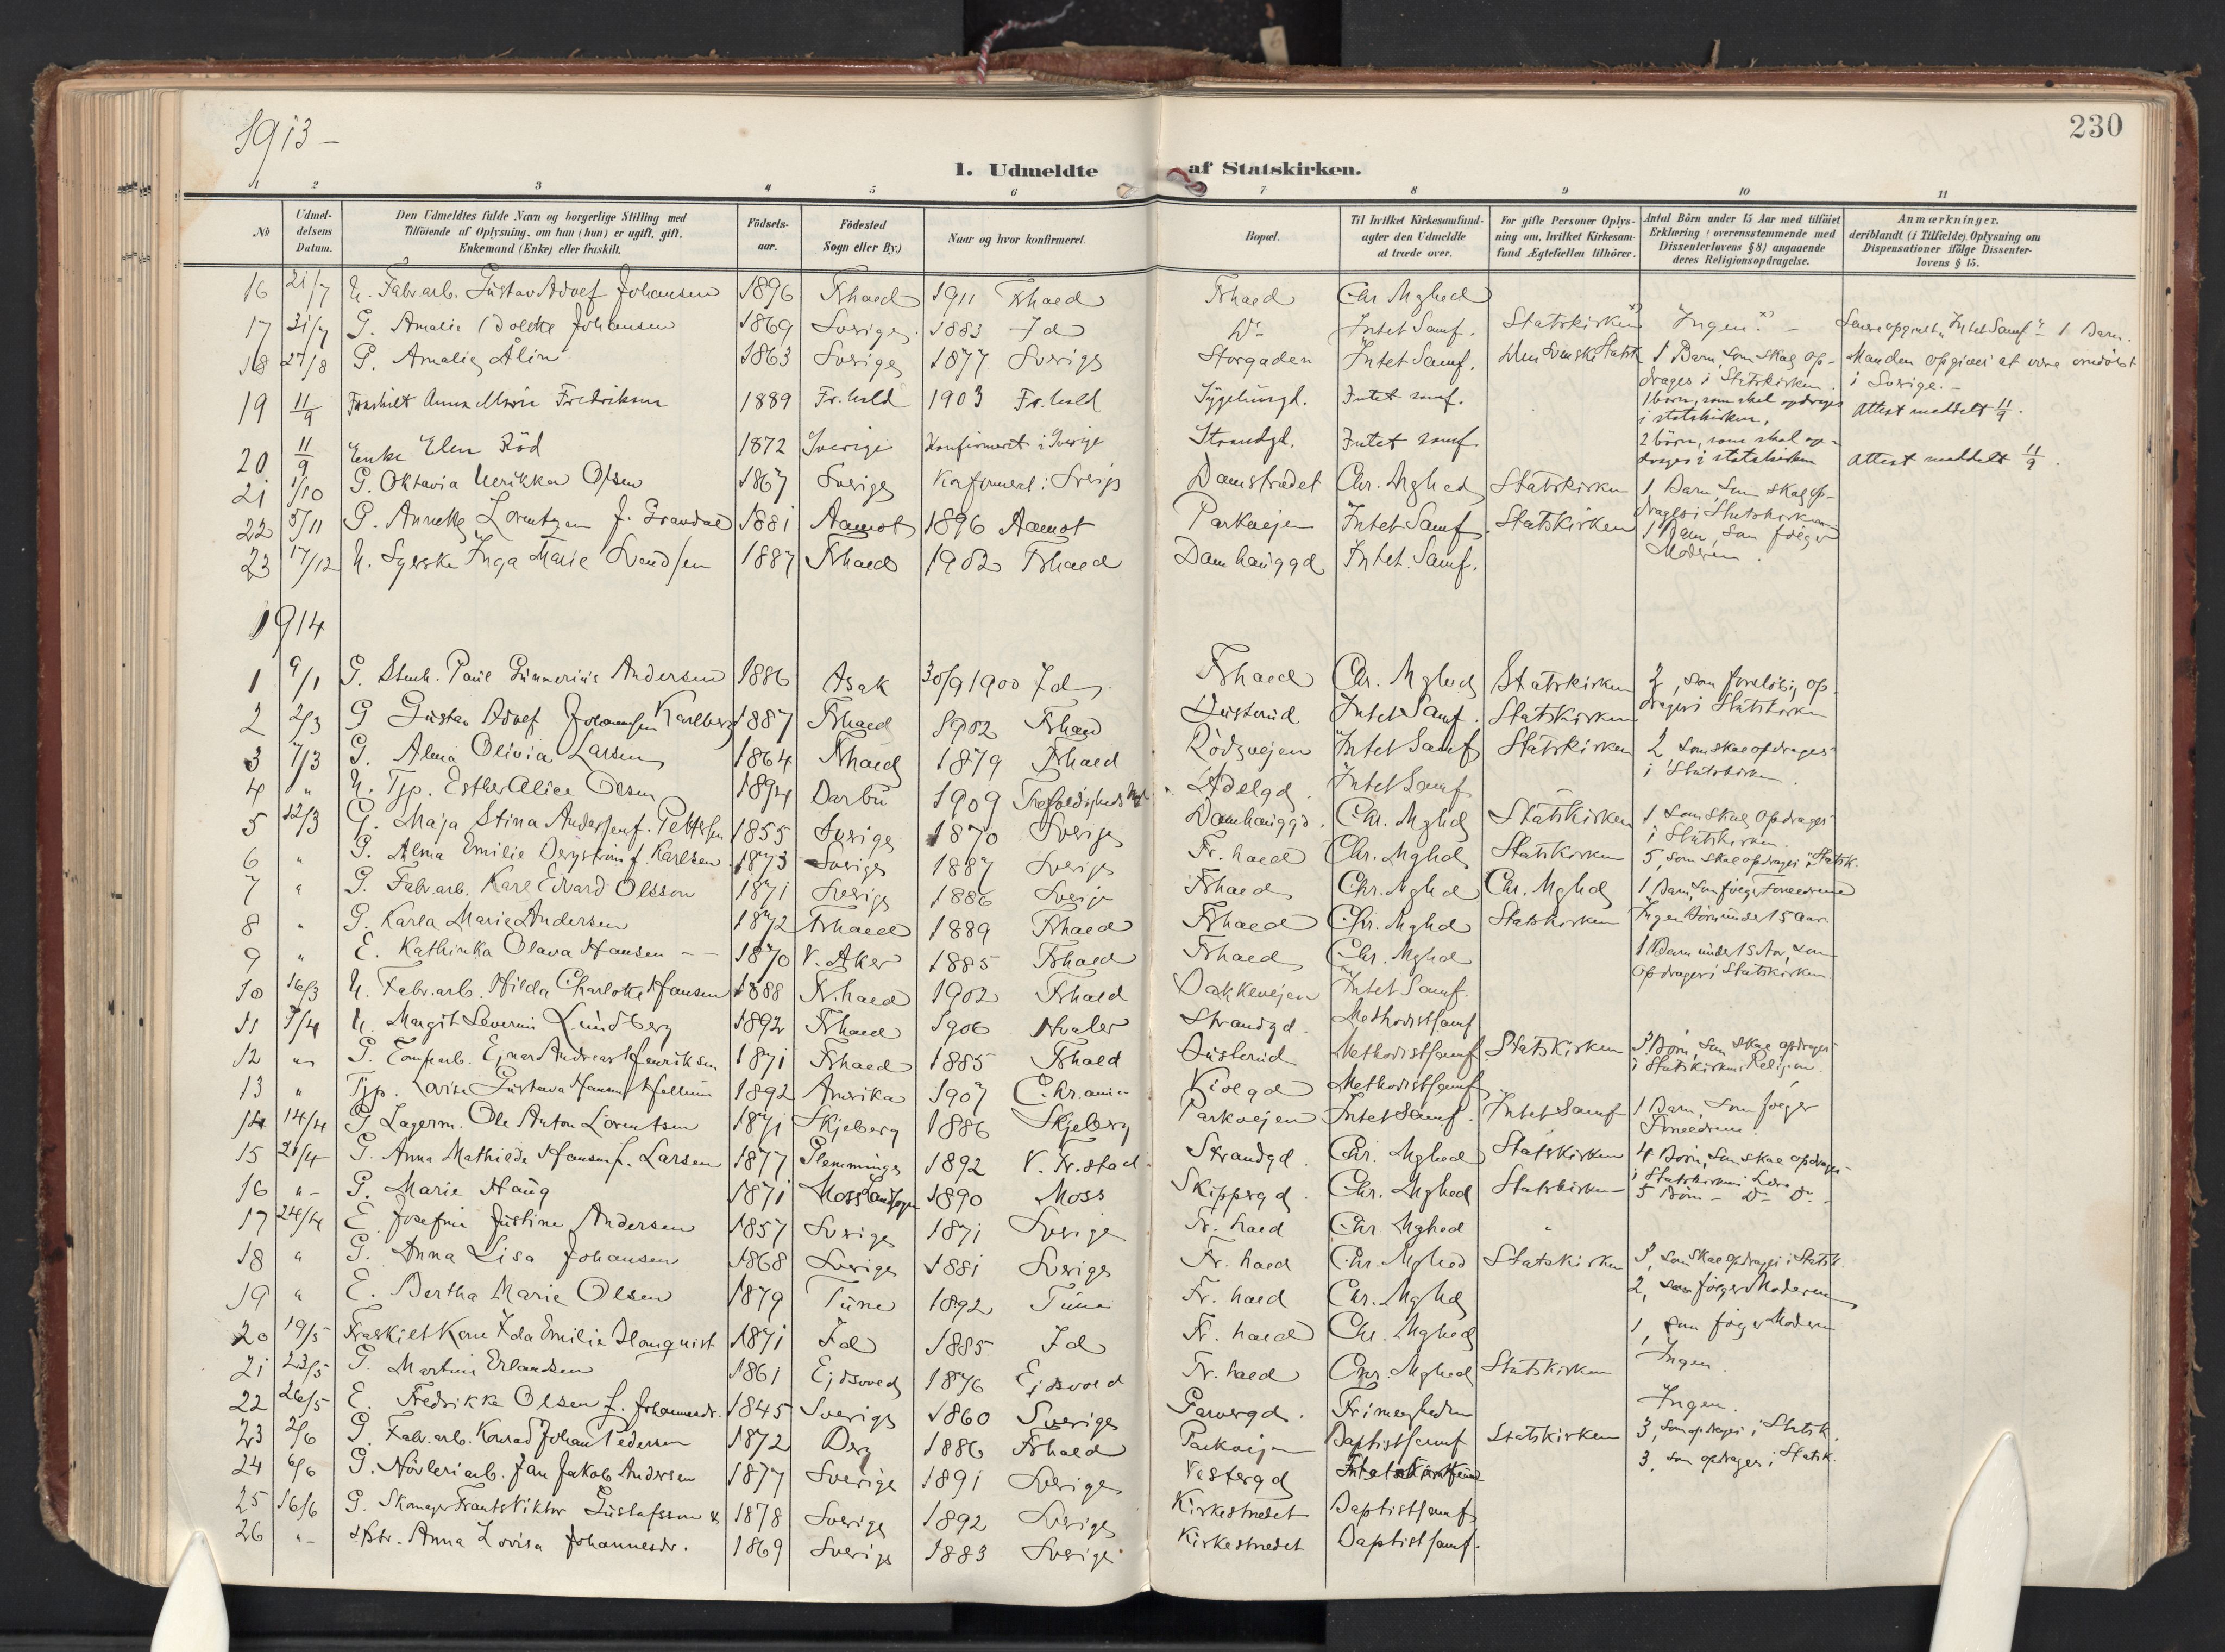 1913 -
230
1. Udmeldte af Statskirken.
1 2 3 4 5 6 7 8 9 10 11
No Udmeldelsens Datum. Den Udmeldtes fulde Navn og borgerlige Stilling med Tilföiende af Oplysning, om han (hun) er ugift, gift, Enkemand (Enke) eller fraskilt. Födsels-aar. Födested Sogn eller By.) Naar og hvor konfirmeret. Bopæl. Til hvilket Kirkesamfund agter den Udmeldte at træde over. For gifte Personer Oplysning om, hvilket Kirkesamfund Ægtefællen tilhörer. Antal Börn under 15 Aar med tilföiet Erklæring (overensstemmende med Dissenterlovens § 8) angaaende deres Religionsopdragelse. Anmærkninger, deriblandt (i Tilfælde) Oplysning om Dispensationer ifölge Dissenterlovens § 15.
16 21/7 U. Fabr.arb. Gustav Adolf Johansen 1896 Frhald 1911 Frhald Frhald Chr. Mghed
17 31/7 G. Amalie Bolette Johansen 1869 Sverige 1883 Id Do Intet Samf. Statskirken x) "Ingen" x) - Senere opgivet "Intet Samf" - 1 Barn.
18 27/8 G. Amalie Ålin 1863 Sverige 1877 Sverige Storgaden Intet Samf. Den Svenske Statsk 1 Barn, som skal opdrages i Statskirken. Manden opgives at være omdöbt i Sverige. -
19 11/9 Fraskilt Anna Marie Fredriksen 1889 Fr.hald 1903 Fr.hald Sygehusgd. Intet samf. 1 barn, som skal opdrages i statskirken. Attest meddelt 11/9.
20 11/9 Enke Elen Röd 1872 Sverige Konfirmeret i Sverige Strandgd. Intet samf. 2 börn, som skal opdrages i statskirken Attest meddelt 11/9.
21 1/10 G. Oktavia Ulrikka Olsen 1867 Sverige Konfirmeret i Sverige Damstrædet Chr. Mghed Statskirken 1 Barn, som skal opdrages i Statskirken
22 5/11 G. Annette Lorentzen f. Grandal 1881 Aamot 1896 Aamot Parkveien Intet Samf. Statskirken 1 Barn, som følger Moderen.
23 17/12 U. Syerske Inga Marie Svendsen 1887 Frhald 1902 Frhald Damhauggd Intet Samf.
1914
1 9/1 G. Stenh. Paul Gunnerius Andersen 1886 Asak 30/9 1900 Id Frhald Chr. Mghed Statskirken 2, som foreløbig opdrages i Statskirken
2 2/3 G Gustav Adolf Johannesen Karlberg 1887 Frhald 1902 Frhald Busterud Intet Samf. Statskirken
3 7/3 G. Alma Olivia Larsen 1864 Frhald 1879 Frhald Rödsveien Intet Samf Statskirken 2 som skal opdrages i Statskirken.
4 " U. Tjp. Esther Alice Olsen 1894 Darbu 1909 Trefoldigheds Adelgd. Intet Samf
5 12/3 G. Maja Stina Andersen f. Pettersen 1855 Sverige 1870 Sverige Damhauggd. Chr. Mghed Statskirken 1 som skal opdrages i Statskirken.
6 " G. Alma Emilie Bergström f. Karlsen 1873 Sverige 1887 Sverige Fr. hald Chr. Mghed Statskirken 5, som skal opdrages i Statsk.
7 " G. Fabr.arb. Karl Edvard Olsson 1871 Sverige 1886 Sverige Frhald Chr. Mghed Chr. Mghed 1 Barn, som følger Forældrene
8 " G. Karla Marie Andersen 1872 Frhald 1889 Frhald Frhald Chr. Mghed Statskirken Ingen Børn under 15 Aar
9 " E. Kathinka Olava Hansen - - 1870 V. Aker 1885 Frhald Frhald Chr. Mghed 1 Barn under 15 Aar, som opdrages i Statskirken.
10 16/3 U. Fabr.arb. Hilda Charlotte Hansen 1888 Fr.hald 1902 Frhald Bakkeveien Intet Samf.
11 7/4 U. Margit Severin Lundberg 1892 Frhald 1906 Hvaler Strandgd. Methodistsamf
12 " G. Tomtearb. Ejnar Andreas Henriksen 1871 Frhald 1885 Frhald Busterud Methodistsamf Statskirken 3 Børn, som skal opdrages i Statskirkens Religion.
13 " Tjp. Lovise Gustava Hansen Hellum 1892 Amerika 1907 Chr.ania Violgd Methodistsamf
14 14/4 G Lagerm. Ole Anton Lorentsen 1871 Skjeberg 1886 Skjeberg Parkveien Intet Samf. Intet Samf 1 Barn, som følger Forældrene.
15 21/4 G. Anna Mathilde Hansen f. Larsen 1877 Glemminge 1892 V. Fr.stad Strandgd. Chr. Mghed Statskirken 4 Børn, som skal opdrages i Statskirkens Lære
16 " - G. Marie Haug 1871 Moss Landsogn 1890 Moss Skippergd. Chr. Mghed Statskirken 5 Børn - Do - Do.
17 24/4 E. Josefine Justine Andersen 1857 Sverige 1871 Sverige Fr. hald Chr. Mghed "
18 " G. Anna Lisa Johansen 1868 Sverige 1881 Sverige Fr. hald Chr. Mghed Statskirken 3, som skal opdrages i Statsk.
19 " E. Bertha Marie Olsen 1879 Tune 1892 Tune Fr. hald Chr. Mghed 2, som følger Moderen
20 19/5 Fraskilt Kone Ida Emilie Blomquist 1871 Id 1885 Id Fr. hald Chr. Mghed 1, som følger Moderen
21 23/5 G. Martin Erlandsen 1861 Ejdsvold 1876 Ejdsvold Fr. hald Chr. Mghed Statskirken Ingen.
22 26/5 E. Fredrikke Olsen f. Johannesdr. 1845 Sverige 1860 Sverige Garvergd. Frimenigheden Ingen.
23 2/6 G. Fabr.arb. Konrad Johan Pedersen 1872 Berg 1886 Frhald Parkveien Baptistsamf Statskirken 3, som opdrages i Statsk.
24 6/6 G. Høvleriarb. Jan Jakob Andersen 1877 Sverige 1891 Sverige Vestergd Intet Samfund 3, som opdrages i Statsk.
25 16/6 G. Skomager Frants Viktor Gustafsson & 1878 Sverige 1892 Sverige Kirkestrædet Baptistsamf
26 " - Hstr. Anna Lovisa Johannesdr. 1869 Sverige 1883 Sverige Kirkestrædet Baptistsamf.